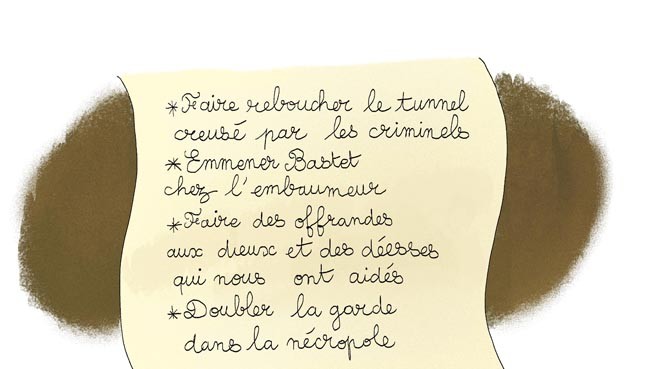 *Faire reboucher le tunnel
creusé par les criminels
*Emmener Bastet
chez l'embaumeur
*Faire des offrandes
aux dieux et des déesses
qui nous ont aidés
*Doubler la garde
dans la nécropole